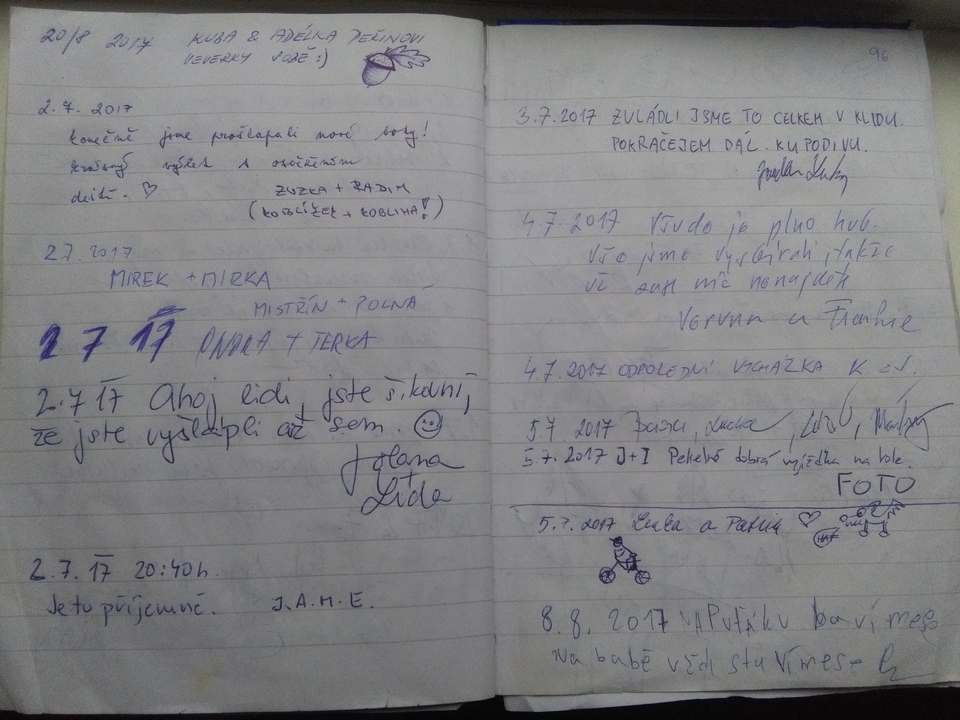 20/8 2017 KUBA & ADÉLKA PEŘINOVI
VEVERKY :)
2.7. 2017
konečně jsme prošlapali nové boty!
krásný výšlap s
deště. ♡
ZUZKA + RADIM
(KOBLÍŽEK + KOBLIHA!)
2.7. 2017
MIREK + MIRKA
MISTŘÍN + POLNÁ
2 7 17 ONDRA + TERKA
2.7 17 Ahoj lidi, jste šikovní,
že jste vyšlápli až sem. ☺
Jolana
+
Lída
2.7.17 20:40h.
Je tu příjemně. J.A.M.E.
96
3.7.2017 ZVLÁDLI JSME TO CELKEM V KLIDU.
POKRAČEJEM DÁL. KUPODIVU.
4.7.2017 Všude je plno hub.
Vše jsme vysbírali, takže
už zase nic nenajdete
Verunn a Frankie
4.7.2017 ODPOLEDNÍ VYCHÁZKA K.
5.7 2017 Lucka,
5.7.2017 J+I Pekelně dobrá vyjížďka na kole.
FOTO
5.7.2017 a ♡
HAF
8.8. 2017 NAPuťáku baví mese
Na babě vždi staVímese